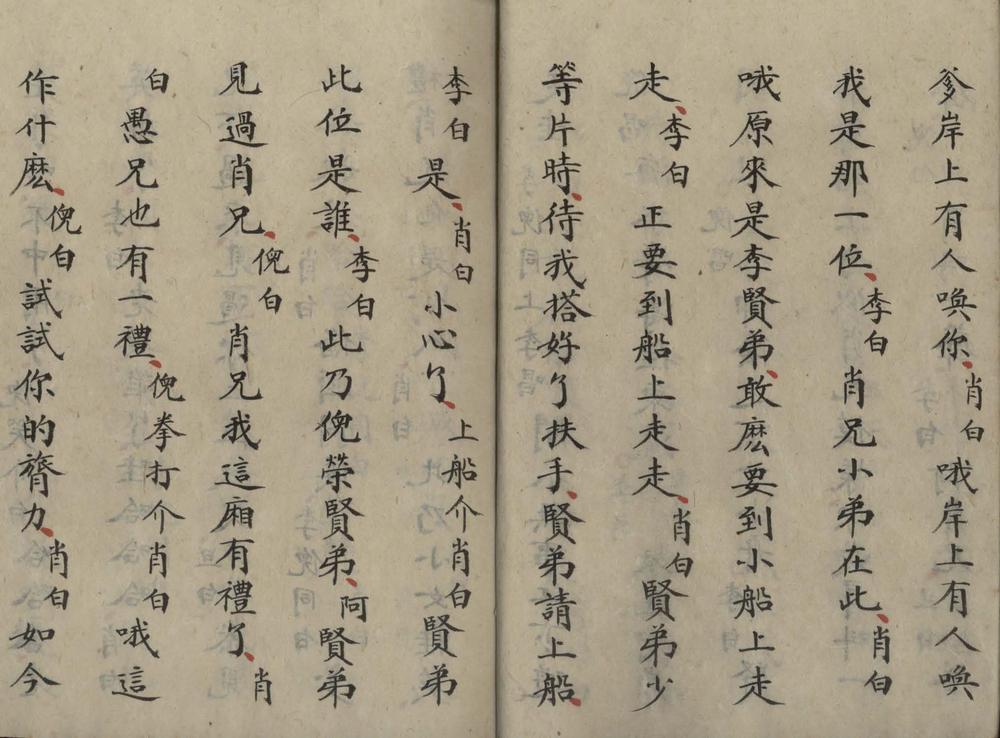 爹岸上有人喚你肖白哦岸上有人喚
我是那一位李白肖兄小弟在此肖白
哦原來是李賢弟敢麽要到小船上走
走李白正要到船上走走肖白賢弟少
等片時待我搭好了扶手賢弟請上船
李白是肖白小心了上船介肖白賢弟
此位是誰李白此乃倪榮賢弟阿賢弟
見過肖兄倪白肖兄我這廂有禮了肖
白愚兄也有一禮倪拳打介肖白哦這
作什麽倪白試試你的膂力肖白如今